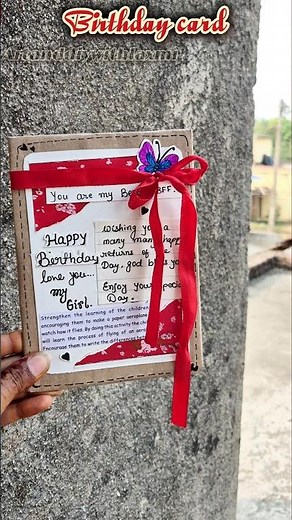 Birthday card
You are my
BFF.
Happy
Birthday
love you...
my
Girl.
Wishing you a
many many happ
returns of
Day. god b
Enjoy your
Day.
Strengthen the learning of the children
encouraging them to make a paper aeroplane
watch how it flies. By doing this activity the
will learn the process of flying of an
Encourage them to write the differences